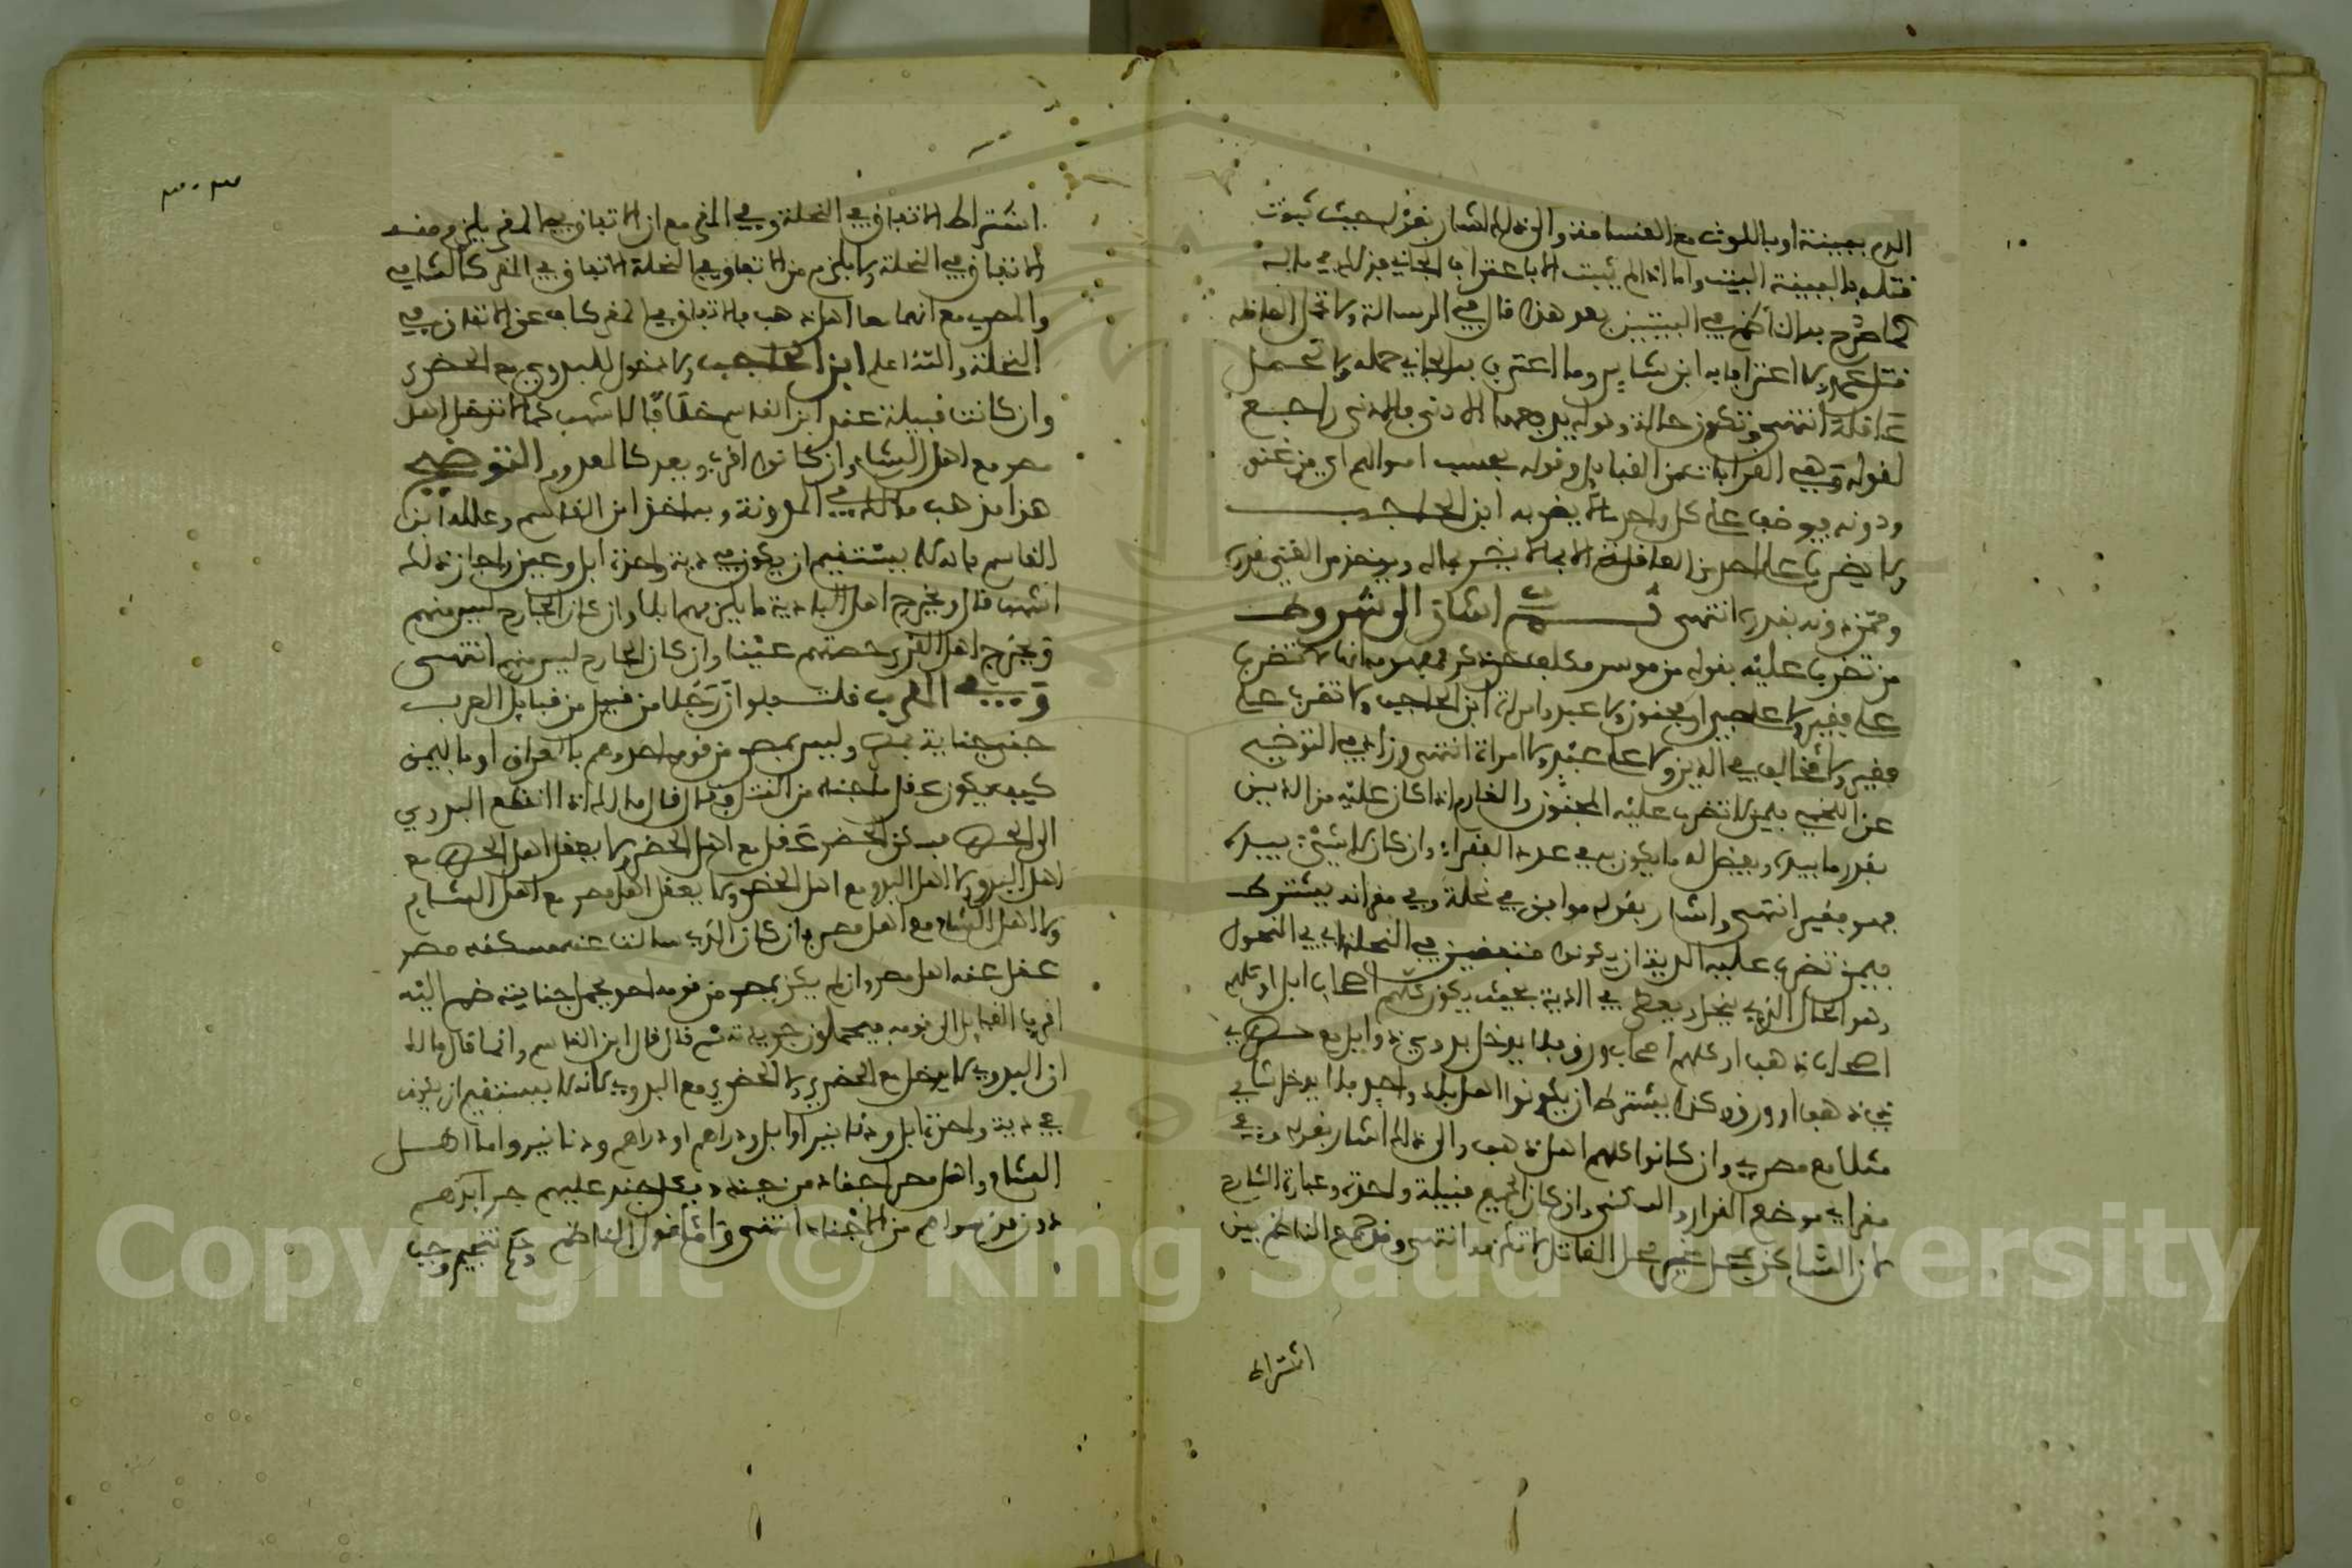 الدم ببينة او باللوث مع القسامة والى ذلك اشار بقوله حيث ثبوت
قتله بالبينة البيت واما اذا لم يثبت الا باعتراف الجاني فذلك في ماله
كما صرح به الناظم في البيتين بعد هذا قال في الرسالة ولا تحمل العاقلة
قتل عمد ولا اعترافا به ابن شاس وما اعترف به الجاني حمله ولا تحمل
عاقلة انتهى وتكون حالة وقوله بعدهما الادنى فالادنى راجع
لقوله وهي القرابات من القبائل وقوله بحسب اموالهم اي من غنى
ودونه فيوضب على كل واحد ما لا يضر به ابن الحاجب
ولا يضرب على احد من العاقلة الا بما لا يضر بماله ويؤخذ من الغني بقدره
وممن دونه بقدره انتهى ثم اشار الى شروط
من تضرب عليه بقوله من موسر مكلف حر ذكر فهم منه انها لا تضرب
على فقير ولا على صبي او مجنون ولا عبد وامراة ابن الحاجب ولا تضرب على
فقير ولا مخالف في الدين ولا على عبد ولا امراة انتهى وزاد في التوضيح
عن اللخمي فيمن لا تضرب عليه المجنون والغارم اذا كان عليه من الدين
بقدر ما بيده ويفضل له ما يكون به في عدد الفقراء وان كان لا شيء بيده
فهو فقير انتهى واشار بقوله موافق في نحلة وفي مقر انه يشترط
فيمن تضرب عليه الدية ان يكونوا متفقين في النحلة اي في النحول
وهو المال الذي ينحل ويعطى في الدية بحيث يكون كلهم اصحاب ابل او كلهم
اصحاب ذهب او كلهم اصحاب ورق فلا يدخل بدوي ذو ابل مع حضري
ذي ذهب او ورق وكذا يشترط ان يكونوا اهل بلد واحد فلا يدخل شامي
مثلا مع مصري وان كانوا كلهم اهل ذهب والى ذلك اشار بقوله وفي
مقر اي موضع القرار والسكنى وان كان الجميع قبيلة واحدة وعبارة الشارح
لان الساكن بمحل غير محل القاتل لا تلزمه انتهى وفي جمع الناظم بين
اشتراط
اشتراط الاتفاق في النحلة وفي المقر مع ان الاتفاق في المقر يلزم منه
الاتفاق في النحلة ولا يلزم من الاتفاق في النحلة الاتفاق في المقر كالشامي
والمصري مع انهما معا اهل ذهب فالاتفاق في المقر كاف عن الاتفاق في
النحلة والله اعلم ابن الحاجب ولا دخول للبدوي مع الحضري
وان كانت قبيلة عند ابن القاسم خلافا لاشهب كما لا تدخل اهل
مصر مع اهل الشام وان كانوا اقرب وبعد كالمعدوم التوضيح
هذا مذهب مالك في المدونة وبه اخذ ابن القاسم وعلله ابن
القاسم بانه لا يستقيم ان يكون في دية واحدة ابل وعين واجاز ذلك
اشهب قال ويخرج اهل البادية ما يلزمهم ابلا وان كان الجارح ليس منهم
ويخرج اهل القرى حصتهم عينا وان كان الجارح ليس منهم انتهى
وفي المقرب قلت فلو ان رجلا من قبيل من قبائل العرب
جنى جناية بمصر وليس بمصر من قومه احد وهم بالعراق او باليمن
كيف يكون عقل ما جناه من القتل قال قال مالك اذا انقطع البدوي
الى الحضر فسكن الحضر عقل مع اهل الحضر ولا يعقل اهل الحضر مع
اهل البدو ولا اهل البدو مع اهل الحضر ولا يعقل اهل مصر مع اهل الشام
ولا اهل الشام مع اهل مصر فان كان الذي سالت عنه مسكنه مصر
عقل عنه اهل مصر وان لم يكن بمصر من قومه احد يحمل جنايته ضم اليه
اقرب القبائل الى قومه فيحملون جريرته ثم قال قال ابن القاسم وانما قال مالك
ان البدوي لا يدخل مع الحضري ولا الحضري مع البدوي لانه لا يستقيم ان يكون
في دية واحدة ابل ودنانير او ابل ودراهم او دراهم ودنانير واما اهل
الشام واهل مصر اجناد من جند وكل جند عليهم جرائرهم
دون من سواهم من الاجناد انتهى واما قول الناظم وحكم تنجيم وجب